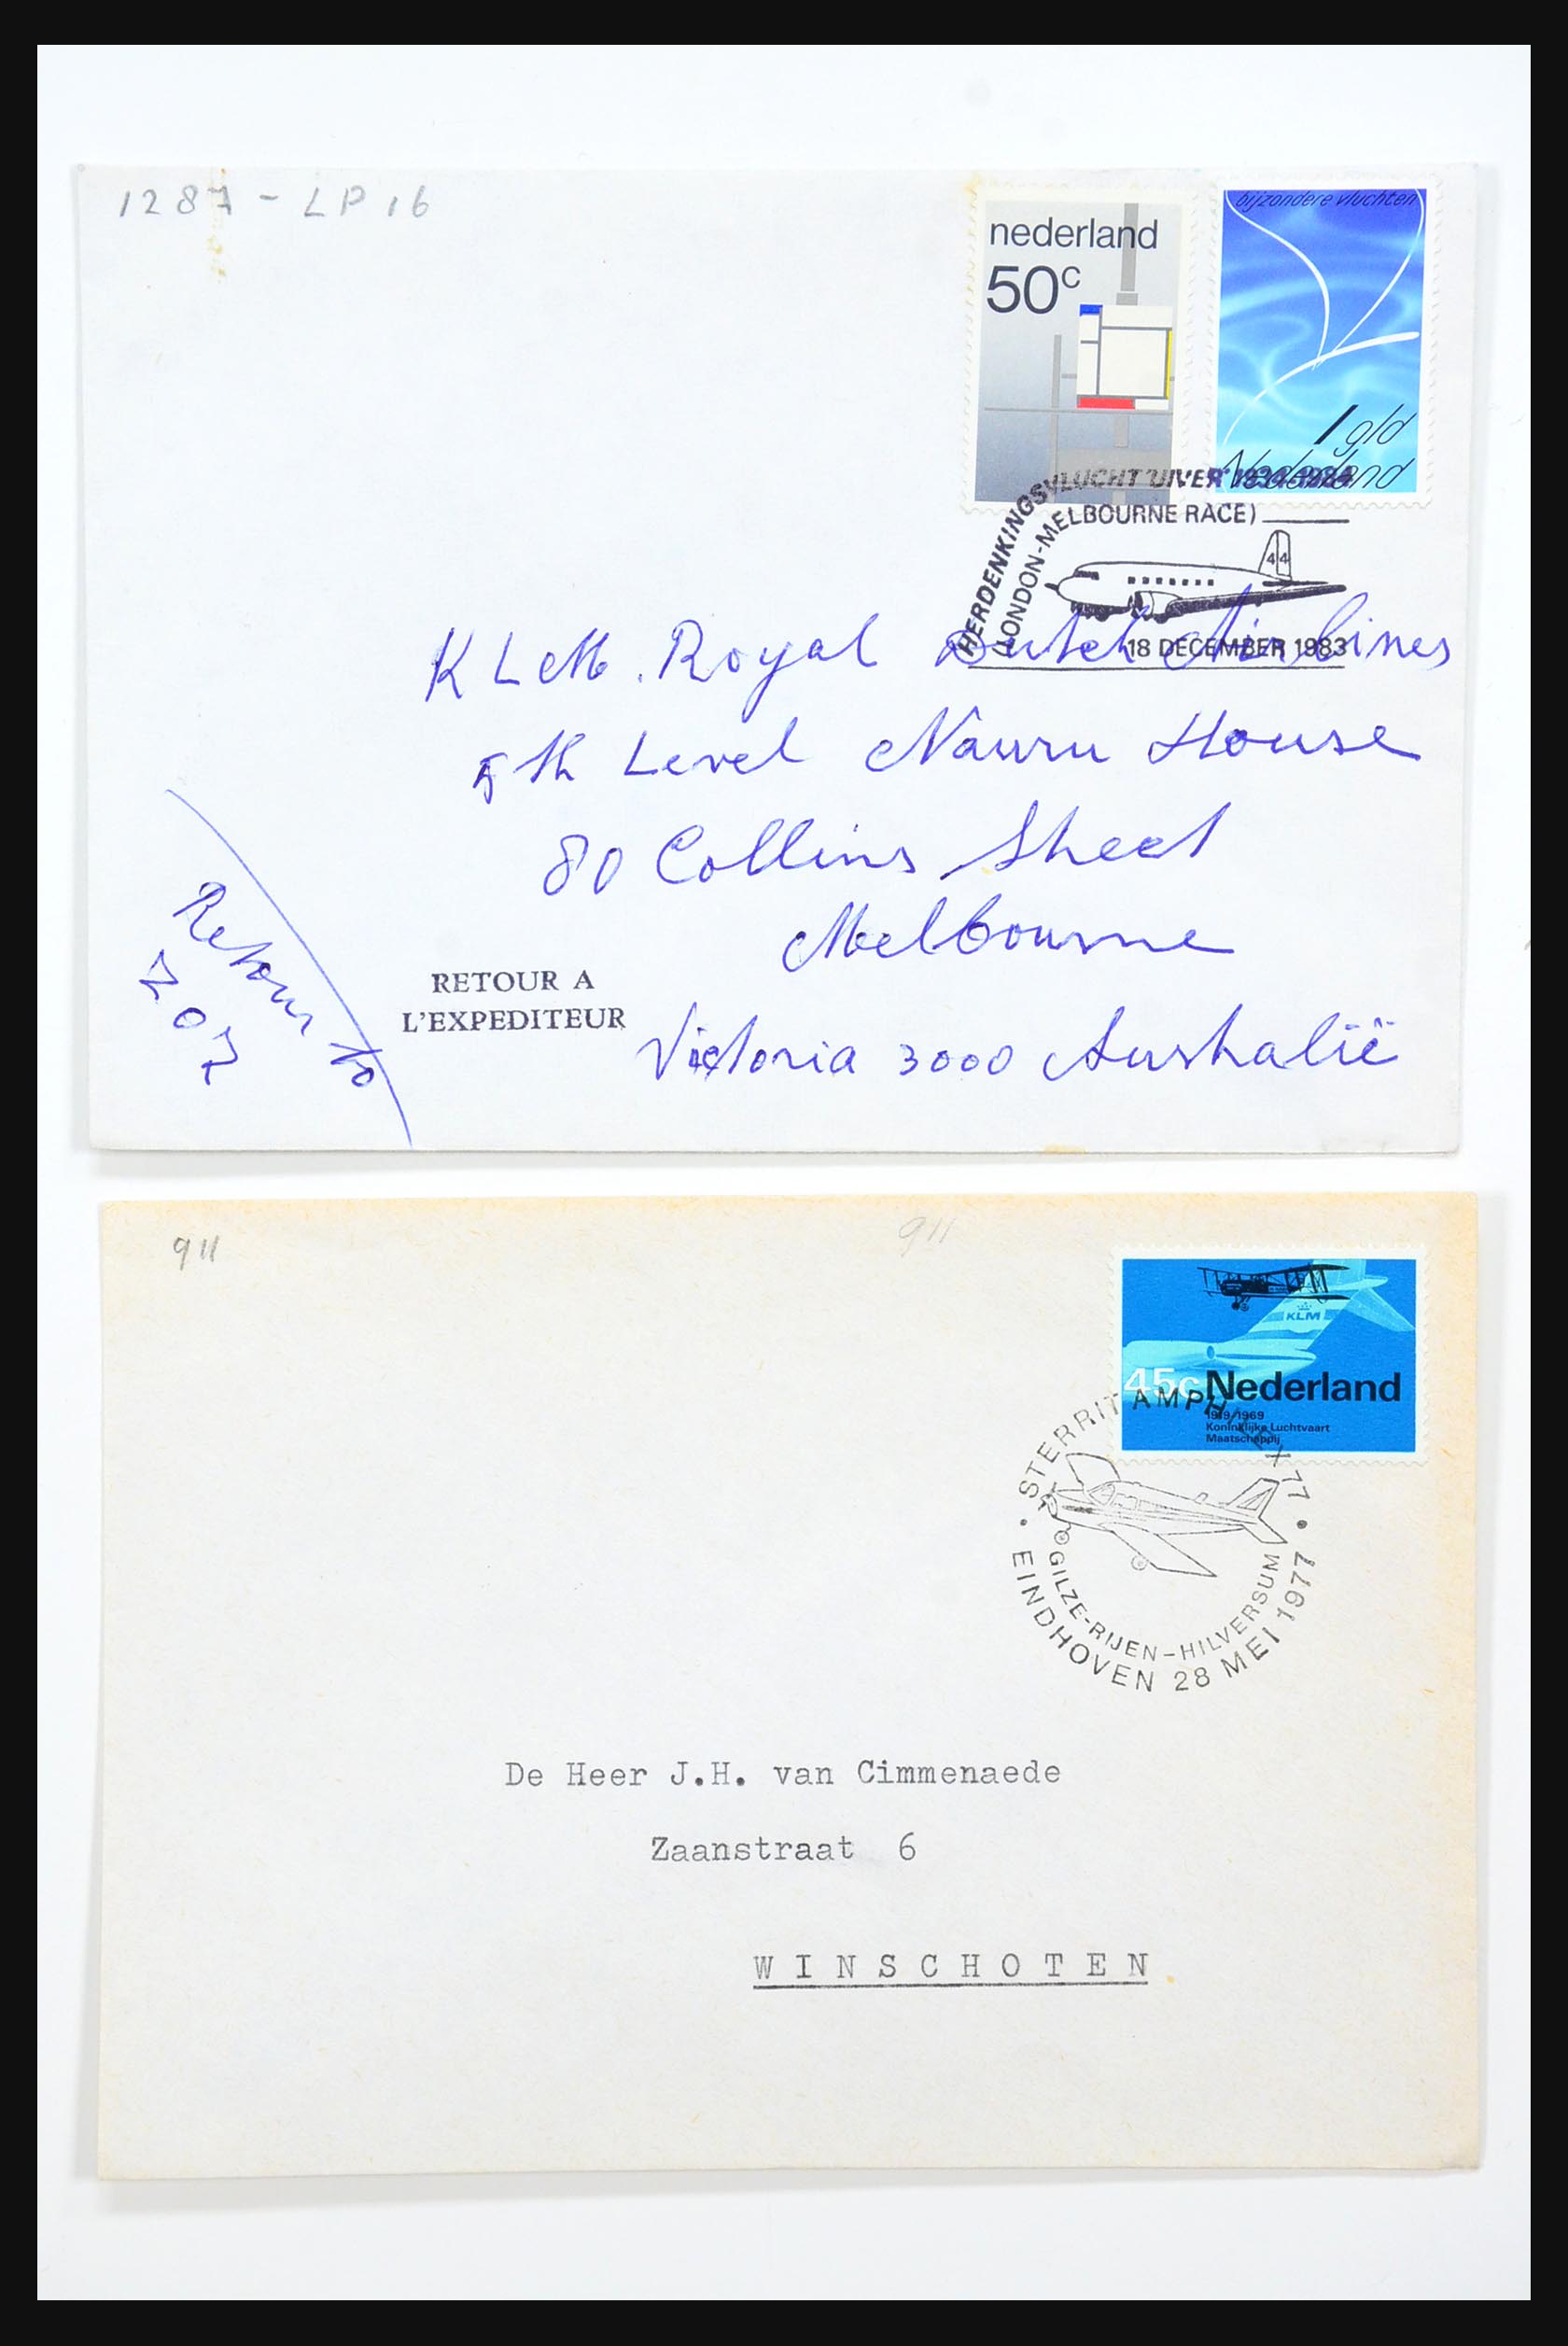 1287 - LP 16
nederland
50c
bijzondere vluchten
1 gld
Nederland
HERDENKINGSVLUCHT 'UIVER' 1934-1984
(LONDON-MELBOURNE RACE)
44
18 DECEMBER 1983
KLM. Royal Dutch Airlines
5th Level Nauru House
80 Collins Street
Melbourne
Victoria 3000 Australië
Retour to
Z07
RETOUR A
L'EXPEDITEUR
911
911
KLM
45c Nederland
1919/1969
Koninklijke Luchtvaart
Maatschappij
STERRIT AMPHILEX 77
GILZE-RIJEN-HILVERSUM
EINDHOVEN 28 MEI 1977
De Heer J.H. van Cimmenaede
Zaanstraat 6
WINSCHOTEN